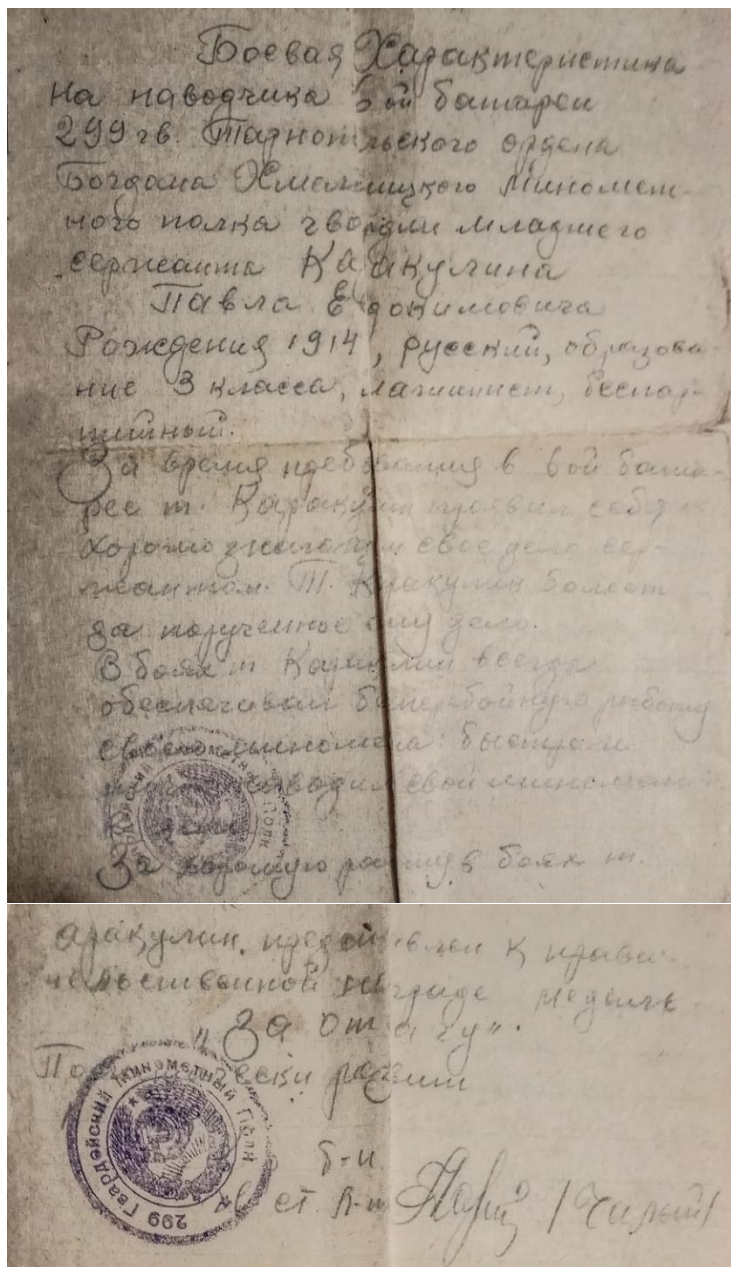 Боевая Характеристика
На наводчика 6ой батареи
299 гв. Тарнопольского ордена
Богдана Хмельницкого Миномет-
ного полка гвардии младшего
сержанта Каракулина
Павла Евдокимовича
Рождения 1914, русский, образова-
ние 3 класса, беспар-
тийный.
За время пребывания в 6ой бата-
рее т. Каракулин проявил себя
хорошо знающим свое дело сер-
жантом. Т. Каракулин болеет
за порученное ему дело.
В боях т Каракулин всегда
обеспечивал бесперебойную работу
своего миномета быстро и
свой миномет
За хорошую работу в боях т.
аракулин. представлен к прави-
тельственной награде медаль
"За Отвагу".
Политически развит
299 Гвардейский Минометный Полк
б-и
гв ст. л-т /Чалый/